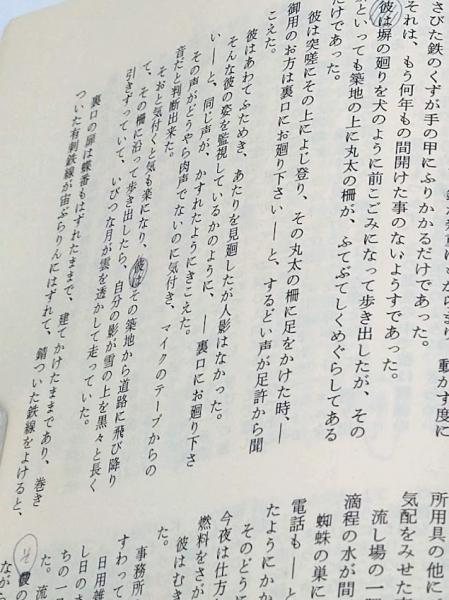 からまり、動かす度に
さびた鉄のくずが手の甲にふりかかるだけであった。
それは、もう何年もの間開けた事のないようすであった。
彼は塀の廻りを犬のように前こごみになって歩き出したが、その
といっても築地の上に丸太の柵が、ふてぶてしくめぐらしてある
だけであった。
彼は突嗟にその上によじ登り、その丸太の柵に足をかけた時、―
御用のお方は裏口にお廻り下さい―と、するどい声が足許から聞
こえた。
彼はあわてふためき、あたりを見廻したが人影はなかった。
そんな彼の姿を監視しているかのように、―裏口にお廻り下さ
い―と、同じ声が、かすれたようにきこえた。
その声がどうやら肉声でないのに気付き、マイクのテープからの
音だと判断出来た。
そおと気付くと気も楽になり、彼はその築地から道路に飛び降り
て、その柵に沿って歩き出したら、自分の影が雪の上を黒々と長く
引きずっていて、いびつな月が雲を透かして走っていた。
裏口の扉は蝶番もはずれたままで、建てかけたままであり、巻き
ついた有刺鉄線が宙ぶらりんにはずれて、錆ついた鉄線をよけると、
所用具の他に
気配をみせた
流し場の一
滴程の水が間
蜘蛛の巣に
電話も―と
たようにかか
そのどうに
今夜は仕方
燃料をさが
彼はむき
た。
事務所
すわって
日用雑
し日のま
ちの一
た。流
その
ながら